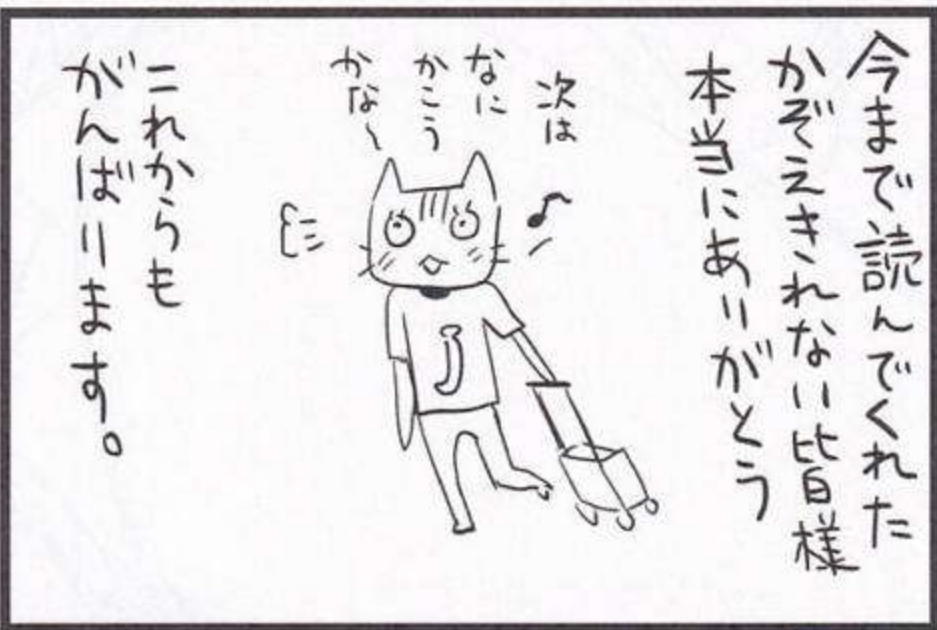 今まで読んでくれた
かぞえきれない皆様
本当にありがとう
次は
なに
かこう
かな〜
これからも
がんばります。